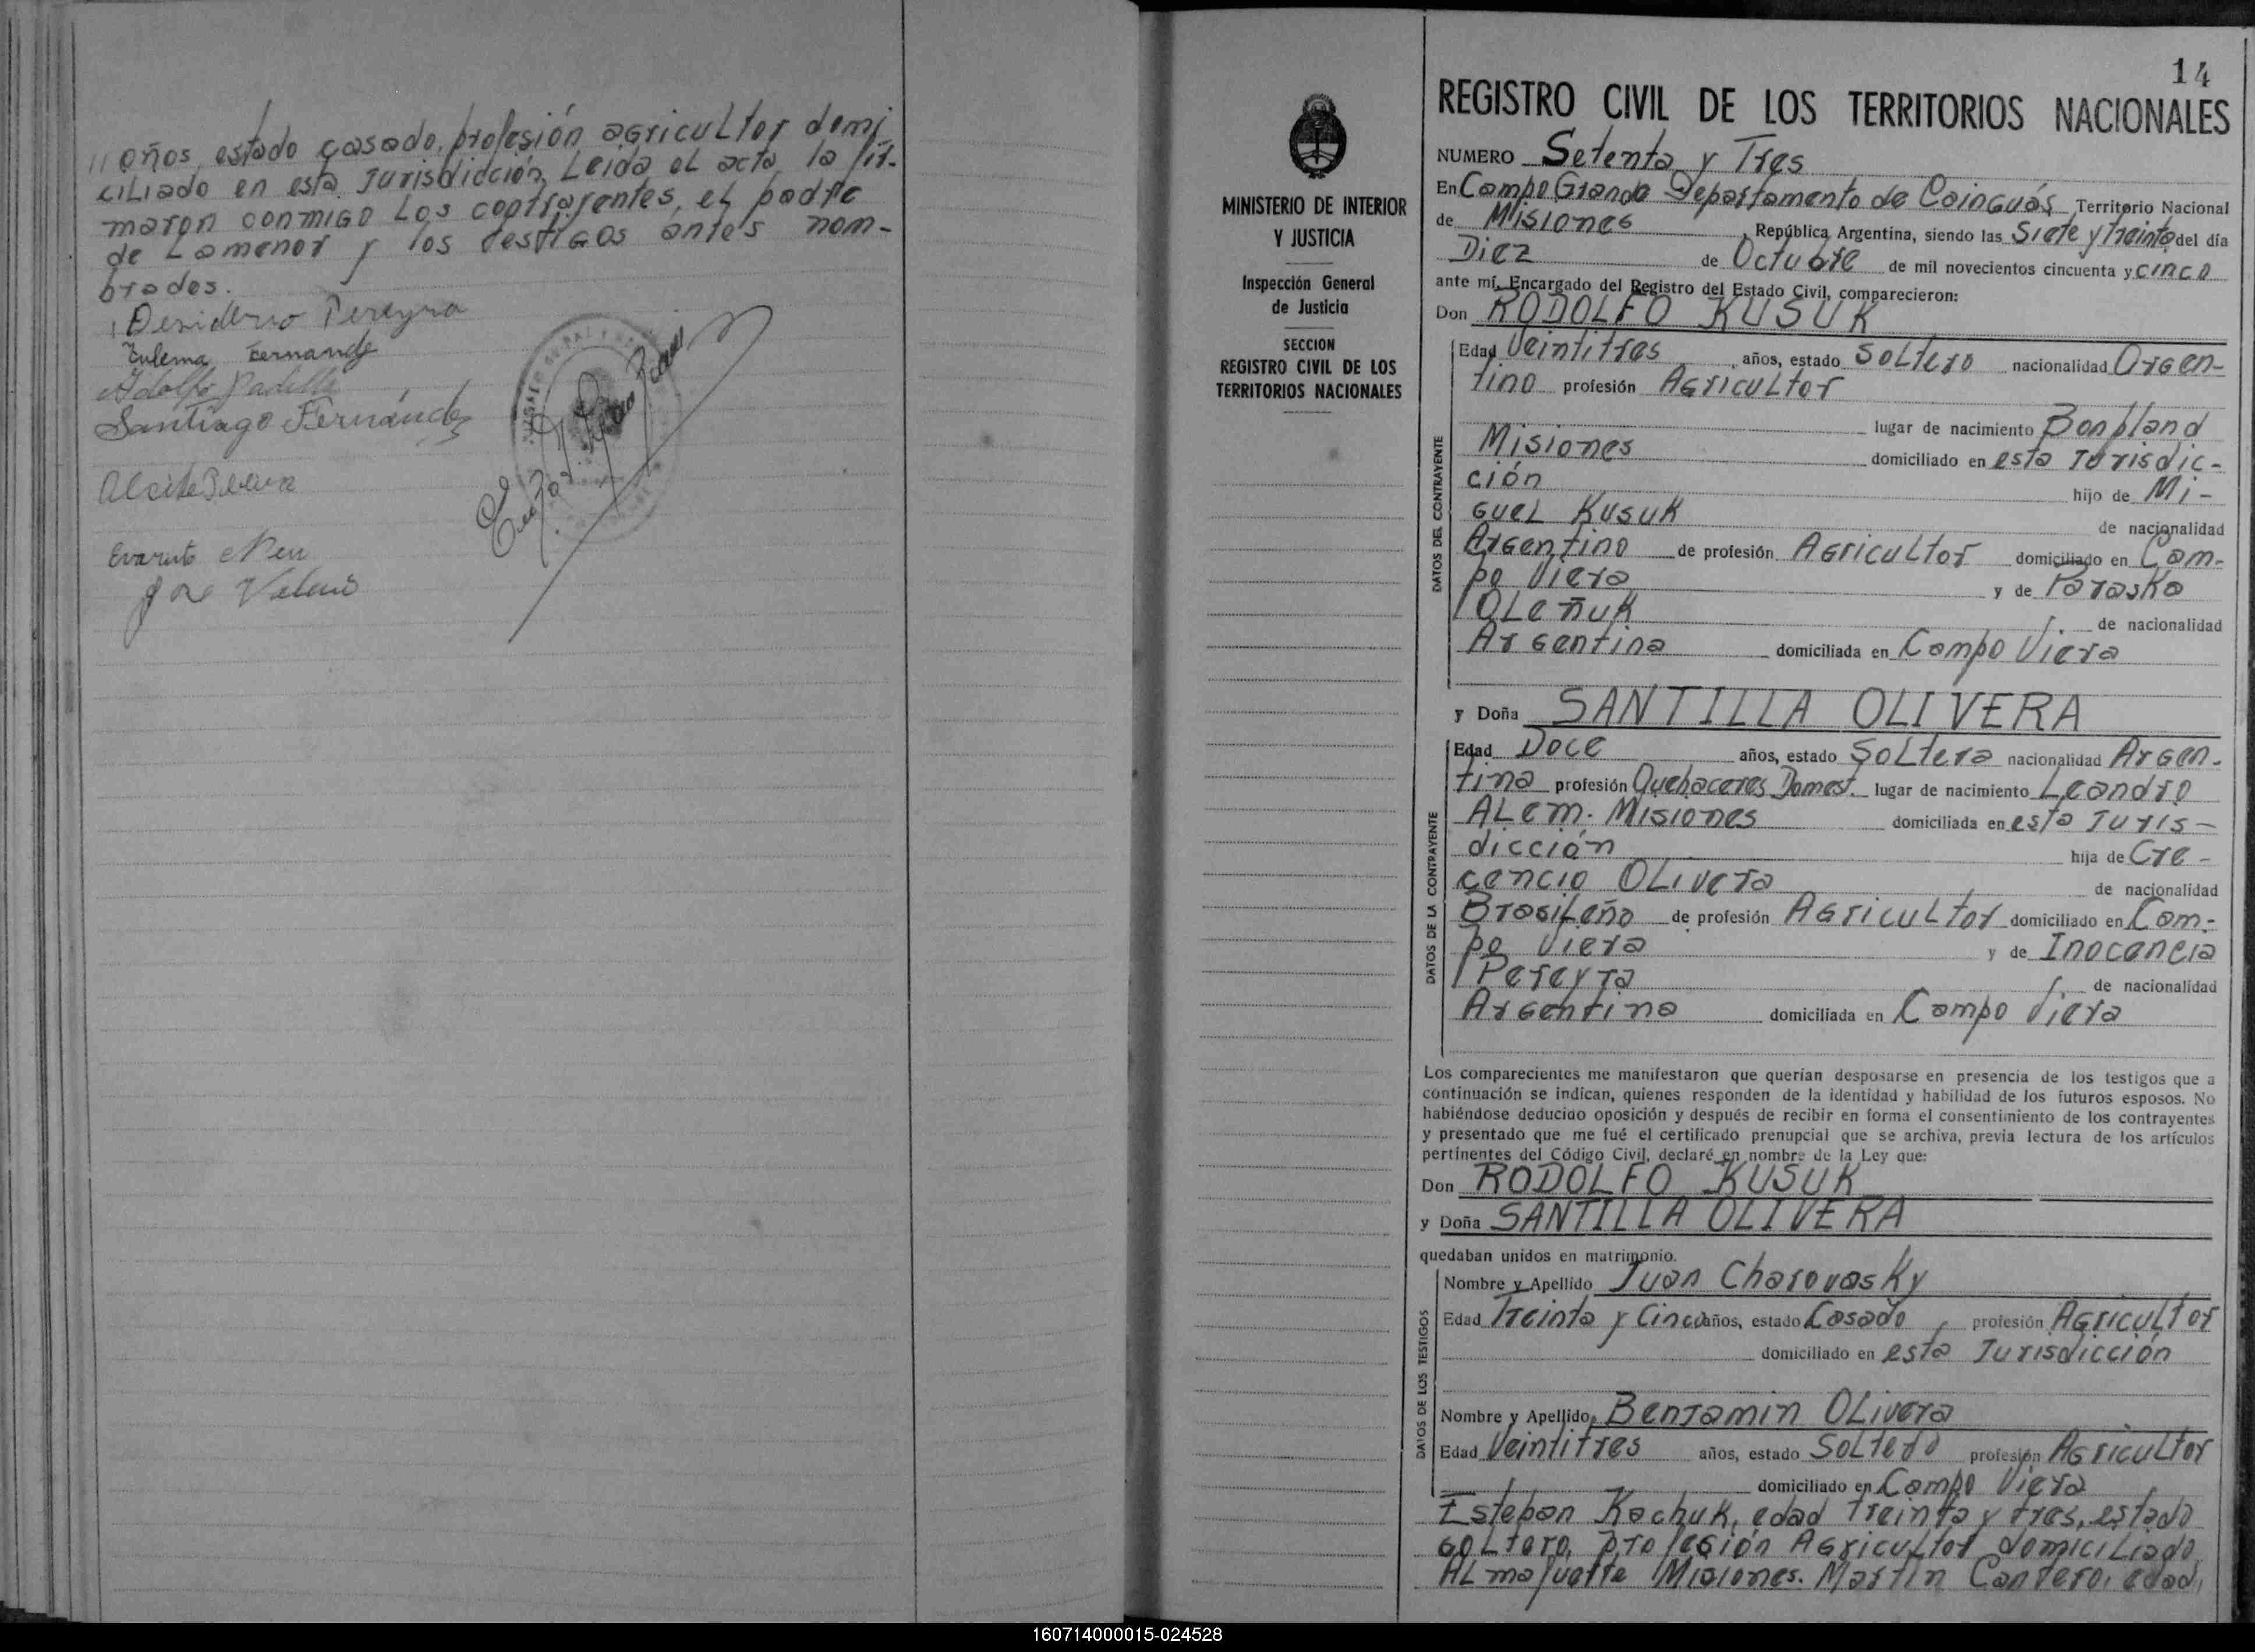 // años, estado casado, profesión agricultor domi
ciliado en esta Jurisdicción Leida el acta, la fir-
maron conmigo Los contrayentes, el padre
de La menor y los testigos ántes nom-
brados.
Desiderio Pereyra
Zulema Fernandez
Adolfo Padilla
Santiago Fernández
José Valerio
14
REGISTRO CIVIL DE LOS TERRITORIOS NACIONALES
MINISTERIO DE INTERIOR
Y JUSTICIA
Inspección General
de Justicia
SECCION
REGISTRO CIVIL DE LOS
TERRITORIOS NACIONALES
NUMERO Setenta y Tres
En Campo Grande Departamento de Cainguás Territorio Nacional
de Misiones, República Argentina, siendo las Siete y treinta del día
Diez de Octubre de mil novecientos cincuenta y cinco
ante mí, Encargado del Registro del Estado Civil, comparecieron:
Don RODOLFO KUSUK
DATOS DEL CONTRAYENTE
Edad Veintitres años, estado Soltero nacionalidad Argen-
tino profesión Agricultor
lugar de nacimiento Bonpland
Misiones domiciliado en esta Jurisdic-
ción hijo de Mi-
guel Kusuk de nacionalidad
Argentino de profesión Agricultor domiciliado en Cam-
po Viera y de Paraska
Oleñuk de nacionalidad
Argentina domiciliada en Campo Viera
y Doña SANTILLA OLIVERA
DATOS DE LA CONTRAYENTE
Edad Doce años, estado Soltera nacionalidad Argen-
tina profesión Quehaceres Domest. lugar de nacimiento Leandro
ALem. Misiones domiciliada en esta Juris-
dicción hija de Cre-
cencio Olivera de nacionalidad
Brasileño de profesión Agricultor domiciliado en Cam-
po Viera y de Inocencia
Pereyra de nacionalidad
Argentina domiciliada en Campo Viera
Los comparecientes me manifestaron que querían desposarse en presencia de los testigos que a
continuación se indican, quienes responden de la identidad y habilidad de los futuros esposos. No
habiéndose deducido oposición y después de recibir en forma el consentimiento de los contrayentes
y presentado que me fué el certificado prenupcial que se archiva, previa lectura de los artículos
pertinentes del Código Civil, declaré en nombre de la Ley que:
Don RODOLFO KUSUK
y Doña SANTILLA OLIVERA
quedaban unidos en matrimonio.
DATOS DE LOS TESTIGOS
Nombre y Apellido Juan Charovasky
Edad Treinta y Cinco años, estado Casado, profesión Agricultor
domiciliado en esta Jurisdicción
Nombre y Apellido Benjamin Olivera
Edad Veintitres años, estado Soltero profesión Agricultor
domiciliado en Campo Viera
Esteban Kachuk, edad treinta y tres, estado
soltero, profesión Agricultor domiciliado
ALmafuerte Misiones. Martín Cantero, edad,
160714000015-024528